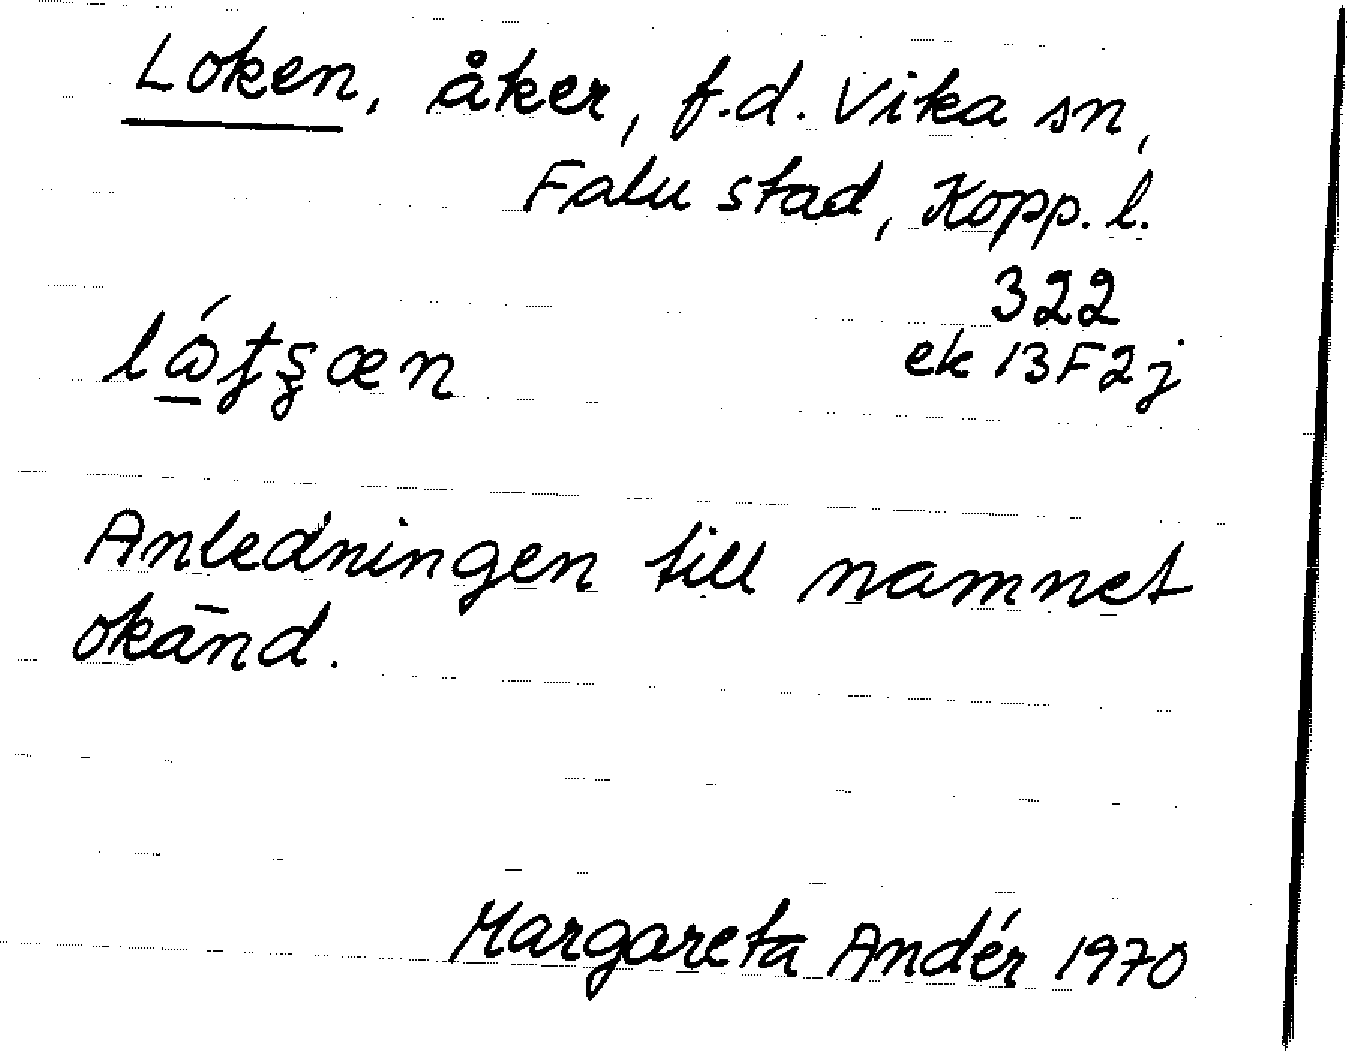 Loken, åker, f.d. Vika sn,
Falu stad, Kopp. l.
322
ek 13F2j
Anledningen till namnet
okänd.
Margareta Andér 1970